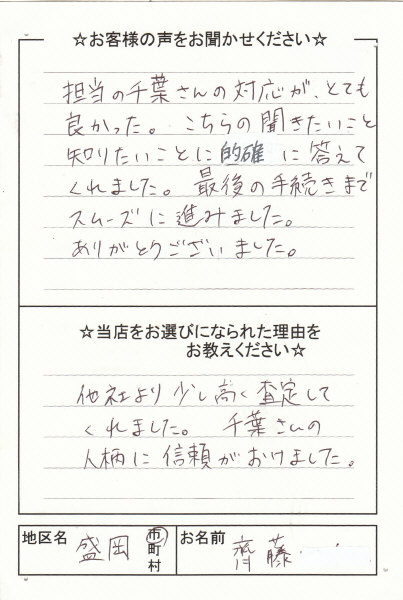 ☆お客様の声をお聞かせください☆
担当の千葉さんの対応が、とても
良かった。こちらの聞きたいこと
知りたいことに的確に答えて
くれました。最後の手続きまで
スムーズに進みました。
ありがとうございました。
☆当店をお選びになられた理由を
お教えください☆
他社より少し高く査定して
くれました。千葉さんの
人柄に信頼がおけました。
地区名 盛岡 市町村 お名前 齊藤